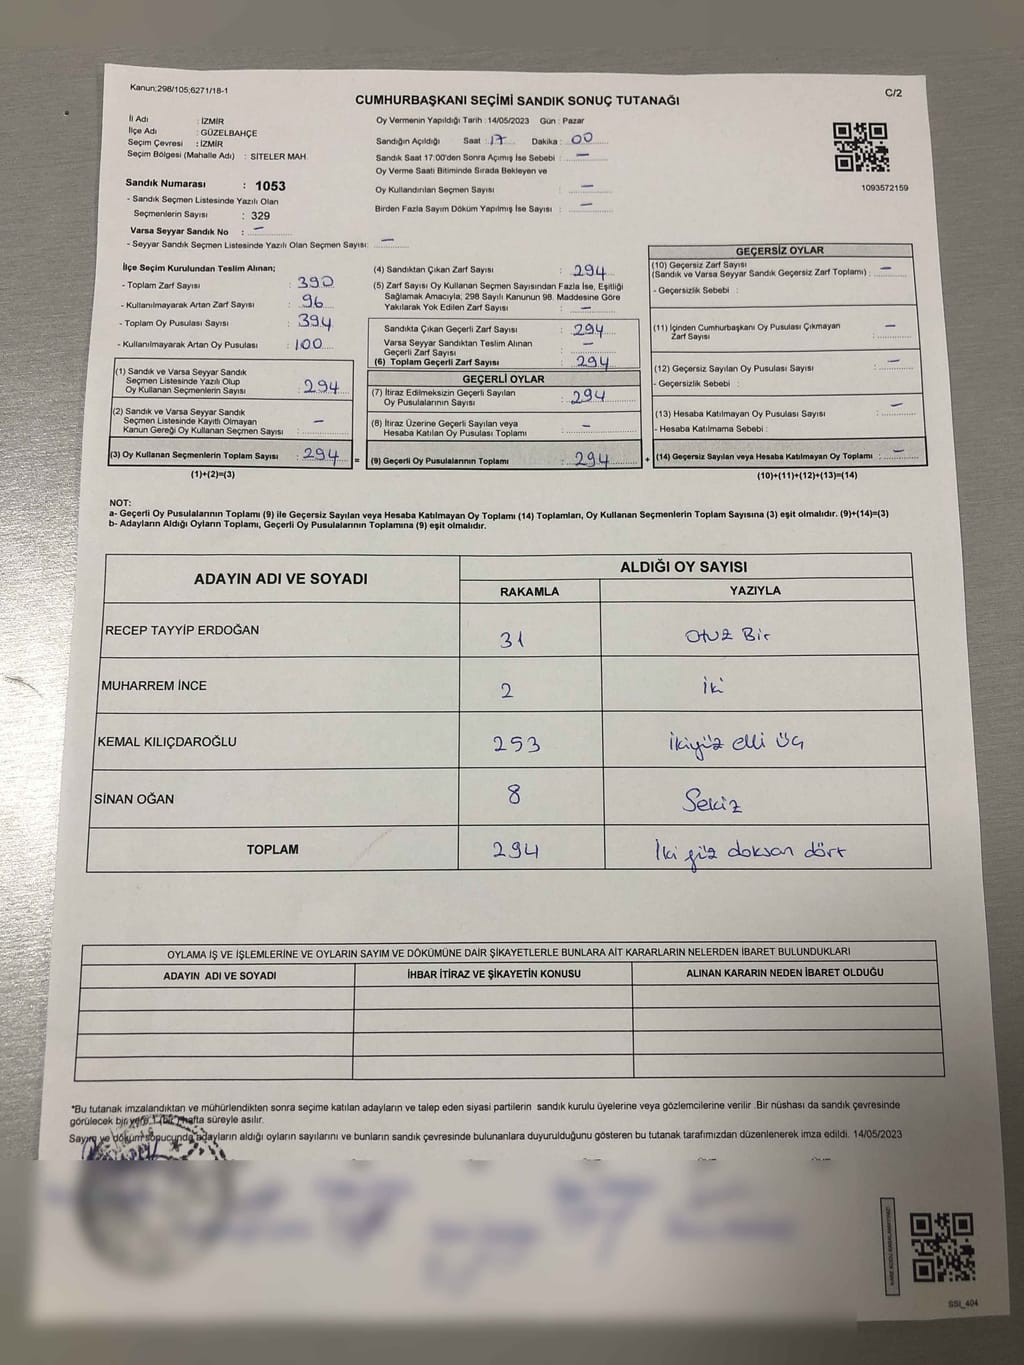 Kanun;298/105;6271/18-1
C/2
CUMHURBAŞKANI SEÇİMİ SANDIK SONUÇ TUTANAĞI
İl Adı : İZMİR
İlçe Adı : GÜZELBAHÇE
Seçim Çevresi : İZMİR
Seçim Bölgesi (Mahalle Adı) : SİTELER MAH.
Sandık Numarası : 1053
- Sandık Seçmen Listesinde Yazılı Olan
Seçmenlerin Sayısı : 329
Varsa Seyyar Sandık No : -
- Seyyar Sandık Seçmen Listesinde Yazılı Olan Seçmen Sayısı: -
Oy Vermenin Yapıldığı Tarih : 14/05/2023 Gün : Pazar
Sandığın Açıldığı Saat : 17 Dakika : 00
Sandık Saat 17:00'den Sonra Açımış İse Sebebi : -
Oy Verme Saati Bitiminde Sırada Bekleyen ve
Oy Kullandırılan Seçmen Sayısı : -
Birden Fazla Sayım Döküm Yapılmış İse Sayısı : -
1093572159
İlçe Seçim Kurulundan Teslim Alınan;
- Toplam Zarf Sayısı : 390
- Kullanılmayarak Artan Zarf Sayısı : 96
- Toplam Oy Pusulası Sayısı : 394
- Kullanılmayarak Artan Oy Pusulası : 100
(1) Sandık ve Varsa Seyyar Sandık
Seçmen Listesinde Yazılı Olup
Oy Kullanan Seçmenlerin Sayısı : 294
(2) Sandık ve Varsa Seyyar Sandık
Seçmen Listesinde Kayıtlı Olmayan
Kanun Gereği Oy Kullanan Seçmen Sayısı : -
(3) Oy Kullanan Seçmenlerin Toplam Sayısı : 294
(1)+(2)=(3)
(4) Sandıktan Çıkan Zarf Sayısı : 294
(5) Zarf Sayısı Oy Kullanan Seçmen Sayısından Fazla İse, Eşitliği
Sağlamak Amacıyla; 298 Sayılı Kanunun 98. Maddesine Göre
Yakılarak Yok Edilen Zarf Sayısı : -
Sandıkta Çıkan Geçerli Zarf Sayısı : 294
Varsa Seyyar Sandıktan Teslim Alınan
Geçerli Zarf Sayısı : -
(6) Toplam Geçerli Zarf Sayısı : 294
GEÇERLİ OYLAR
(7) İtiraz Edilmeksizin Geçerli Sayılan
Oy Pusulalarının Sayısı : 294
(8) İtiraz Üzerine Geçerli Sayılan veya
Hesaba Katılan Oy Pusulası Toplamı : -
= (9) Geçerli Oy Pusulalarının Toplamı : 294 +
GEÇERSİZ OYLAR
(10) Geçersiz Zarf Sayısı
(Sandık ve Varsa Seyyar Sandık Geçersiz Zarf Toplamı) : -
- Geçersizlik Sebebi :
(11) İçinden Cumhurbaşkanı Oy Pusulası Çıkmayan
Zarf Sayısı : -
(12) Geçersiz Sayılan Oy Pusulası Sayısı : -
- Geçersizlik Sebebi :
(13) Hesaba Katılmayan Oy Pusulası Sayısı : -
- Hesaba Katılmama Sebebi :
(14) Geçersiz Sayılan veya Hesaba Katılmayan Oy Toplamı : -
(10)+(11)+(12)+(13)=(14)
NOT:
a- Geçerli Oy Pusulalarının Toplamı (9) ile Geçersiz Sayılan veya Hesaba Katılmayan Oy Toplamı (14) Toplamları, Oy Kullanan Seçmenlerin Toplam Sayısına (3) eşit olmalıdır. (9)+(14)=(3)
b- Adayların Aldığı Oyların Toplamı, Geçerli Oy Pusulalarının Toplamına (9) eşit olmalıdır.
ADAYIN ADI VE SOYADI
ALDIĞI OY SAYISI
RAKAMLA YAZIYLA
RECEP TAYYİP ERDOĞAN 31 Otuz Bir
MUHARREM İNCE 2 İki
KEMAL KILIÇDAROĞLU 253 İkiyüz elli üç
SİNAN OĞAN 8 Sekiz
TOPLAM 294 İki yüz doksan dört
OYLAMA İŞ VE İŞLEMLERİNE VE OYLARIN SAYIM VE DÖKÜMÜNE DAİR ŞİKAYETLERLE BUNLARA AİT KARARLARIN NELERDEN İBARET BULUNDUKLARI
ADAYIN ADI VE SOYADI İHBAR İTİRAZ VE ŞİKAYETİN KONUSU ALINAN KARARIN NEDEN İBARET OLDUĞU
*Bu tutanak imzalandıktan ve mühürlendikten sonra seçime katılan adayların ve talep eden siyasi partilerin sandık kurulu üyelerine veya gözlemcilerine verilir .Bir nüshası da sandık çevresinde
görülecek bir yere 1 bir hafta süreyle asılır.
Sayım ve döküm sonucunda adayların aldığı oyların sayılarını ve bunların sandık çevresinde bulunanlara duyurulduğunu gösteren bu tutanak tarafımızdan düzenlenerek imza edildi. 14/05/2023
SSI_404